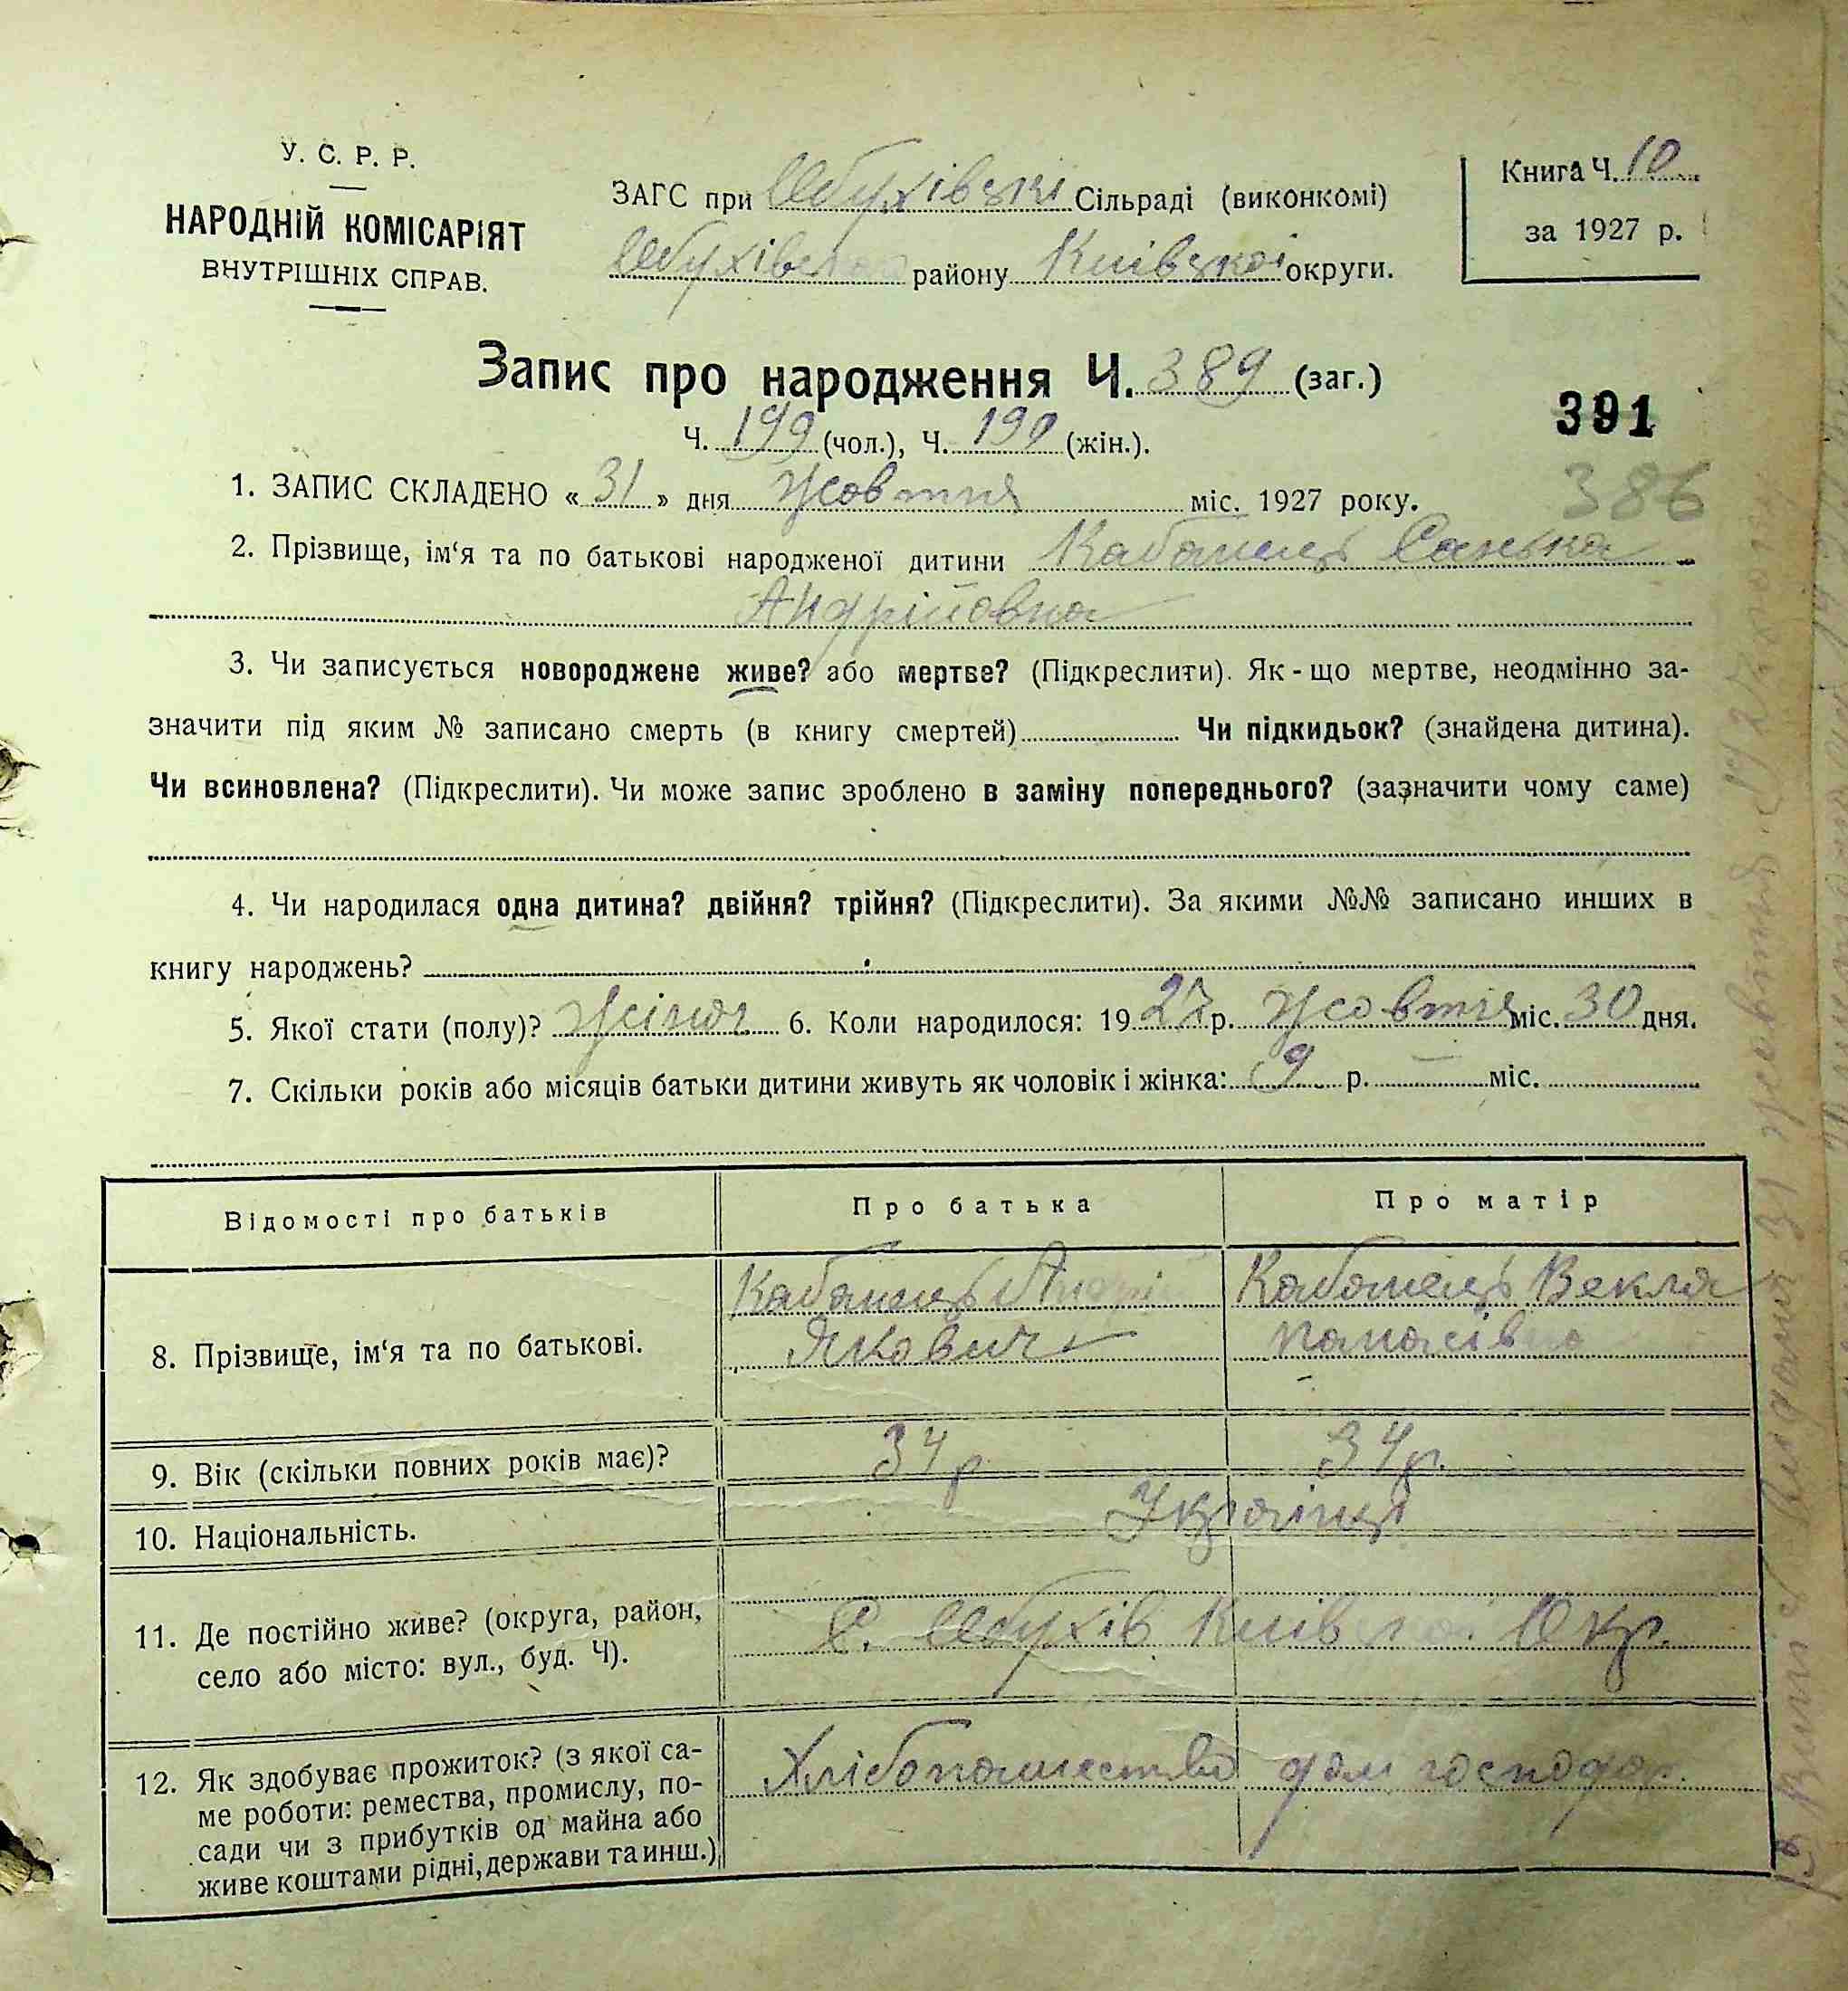 У. С. Р. Р.
НАРОДНІЙ КОМІСАРІЯТ
ВНУТРІШНІХ СПРАВ.
ЗАГС при Обухівські Сільраді (виконкомі)
Обухівского району Київскої округи.
Книга Ч. 10
за 1927 р.
Запис про народження Ч. 389 (заг.)
Ч. 199 (чол.), Ч. 190 (жін.).
391
386
1. ЗАПИС СКЛАДЕНО « 31 » дня Жовтня міс. 1927 року.
2. Прізвище, ім‘я та по батькові народженої дитини Кабанець Санька
Андрійовна
3. Чи записується новороджене живе? або мертве? (Підкреслити). Як-що мертве, неодмінно за-
значити під яким № записано смерть (в книгу смертей) Чи підкидьок? (знайдена дитина).
Чи всиновлена? (Підкреслити). Чи може запис зроблено в заміну попереднього? (зазначити чому саме)
4. Чи народилася одна дитина? двійня? трійня? (Підкреслити). За якими №№ записано инших в
книгу народжень?
5. Якої стати (полу)? Жіноч 6. Коли народилося: 1927 р. Жовтня міс. 30 дня.
7. Скільки років або місяців батьки дитини живуть як чоловік і жінка: 9 р. — міс.
Відомості про батьків Про батька Про матір
Кабанець Андрій Кабанець Векла
8. Прізвище, ім‘я та по батькові. Якович Панасівна
9. Вік (скільки повних років має)? 34 р. 34 р.
10. Національність. Українці
11. Де постійно живе? (округа, район,
село або місто: вул., буд. Ч). с. Обухів Київської Окр.
12. Як здобуває прожиток? (з якої са-
ме роботи: ремества, промислу, по-
сади чи з прибутків од майна або
живе коштами рідні, держави та инш.)
Хлібопашество дом господар.
31 жовтня 1927